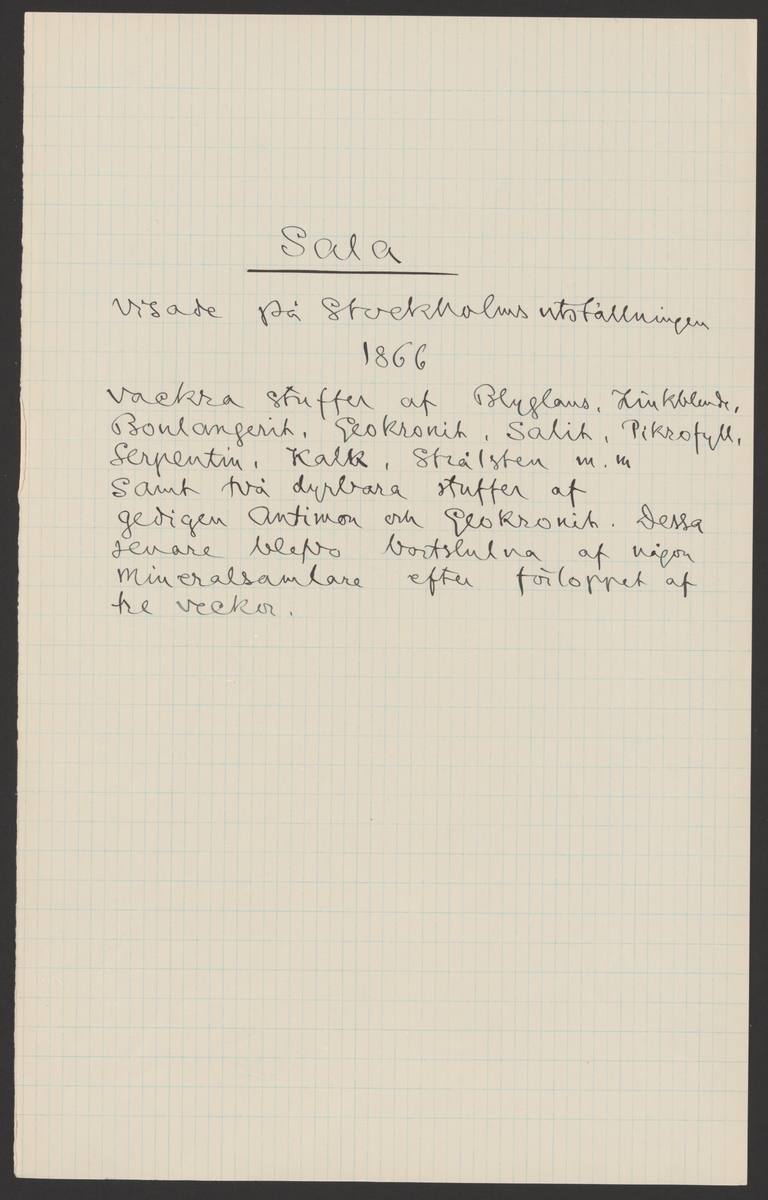 Sala
visade på Stockholmsutställningen
1866
vackra stuffer af Blyglans, Zinkblende,
Boulangerit, Geokronit, Salit, Pikrofyll,
Serpentin, Kalk, Strålsten m.m
samt två dyrbara stuffer af
gedigen Antimon och Geokronit. Dessa
senare blefvo bortstulna af någon
Mineralsamlare efter förloppet af
tre veckor.